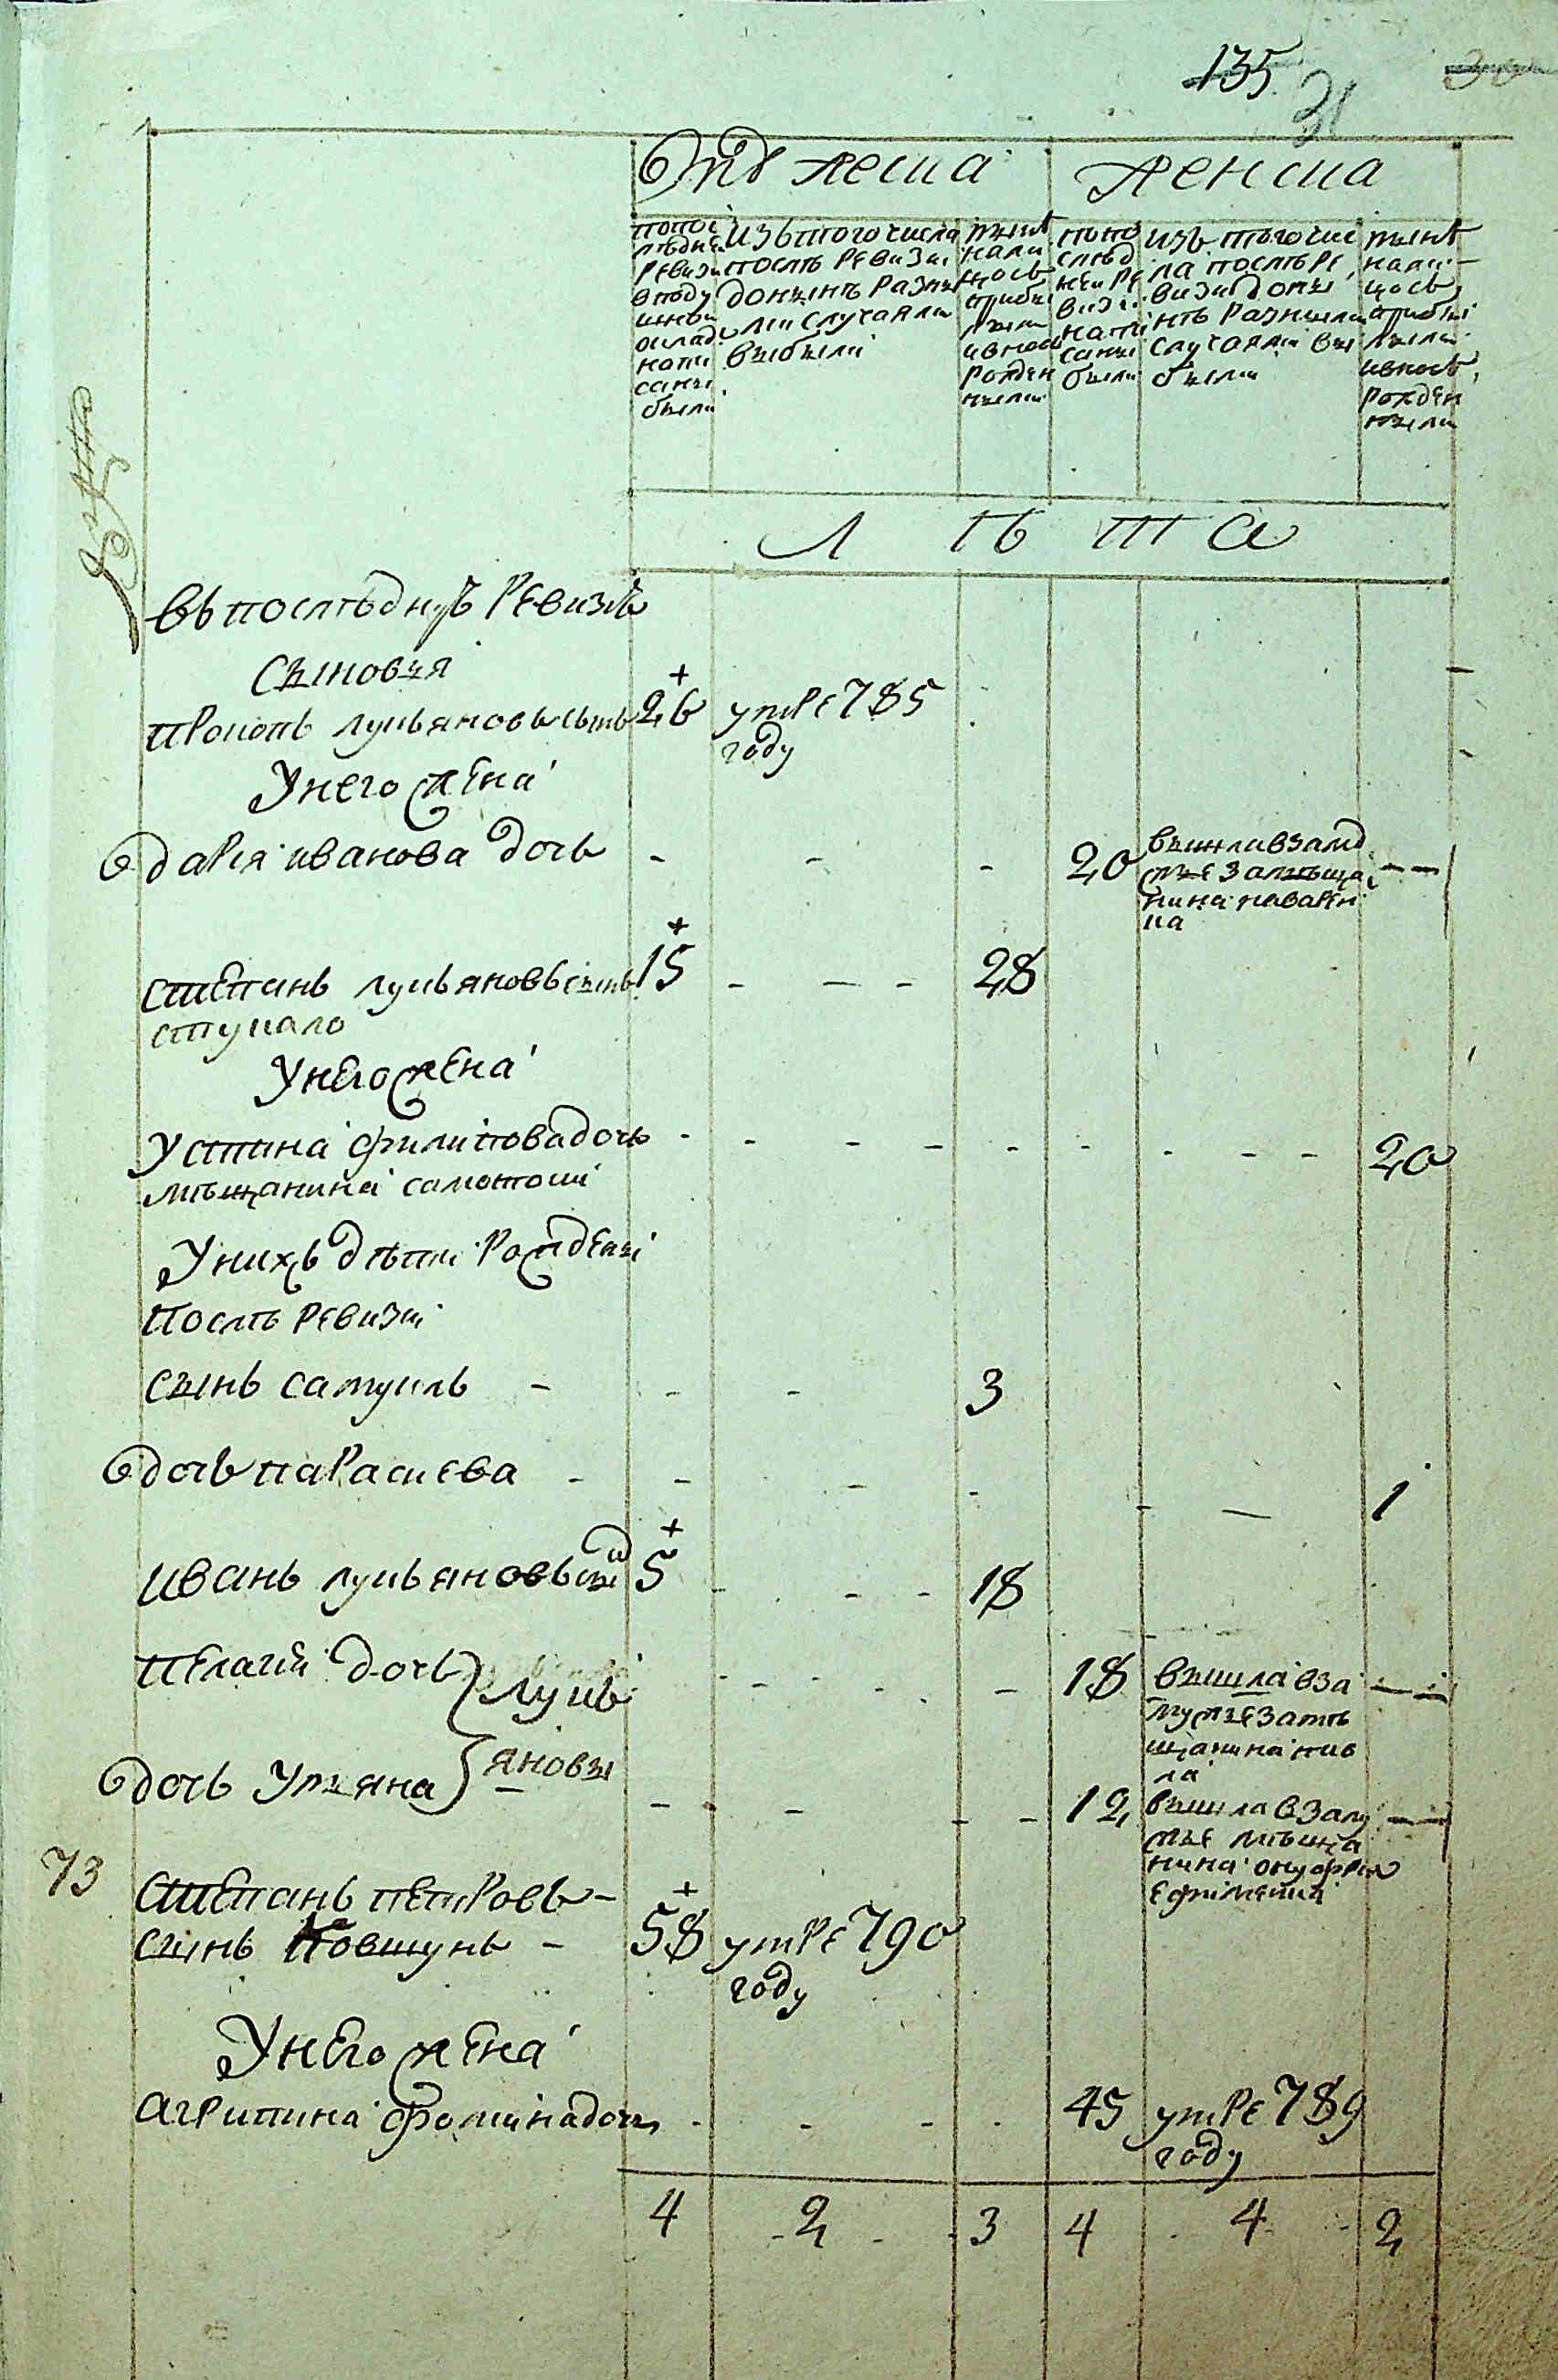 135
31
30
Мужеска
Женска
попос
лѣдне
Ревизи
вподу
шнои
оклад
напи
саны
были
изътого числа
послѣ Ревизи
донынѣ Разны
ми случаями
выбыли
нынѣ
нали
цось
прибы
лыми
ивновь
Рожден
ными
попо
слѣд
неи Ре
визи
напи
саны
были
изъ того чис
ла послѣ Ре
визи доны
нѣ Разными
случаями вы
были
нынѣ
нали
цось
прибы
лыми
ивновь
Рожден
ными
Л ѣ т а
Въ послѣднуѣ Ревизѣ
Сыновья
Прокопъ лукьяновъ сынъ 26 умре 785
году
У него жена
дарья иванова дочь - - - 20 вышла взамо
мужье замѣща
нина
Степанъ лукьяновъ сынъ 15 - - - 28
стукало
У него жена
Устина филипова дочь - - - - - - - - - 20
мѣщанина
У нихъ дѣти Рождены
После Ревизи
сынъ самуилъ - - - 3
дочь параскева - - - - - - 1
иванъ лукьяновъ сынъ 5 - - - 18
пелагия дочь - - - - - 18 вышла вза
мужье замѣ
щанина
Лукь
яновы
дочь ульяна - - - - - 12 вышла взаму
жье мѣща
нина онофрия
73
Степанъ петровъ -
сынъ Ковтунъ - 58 умре 790
году
У него жена
агрипина фомина дочь - - - - 45 умре 789
году
4 2 3 4 4 2